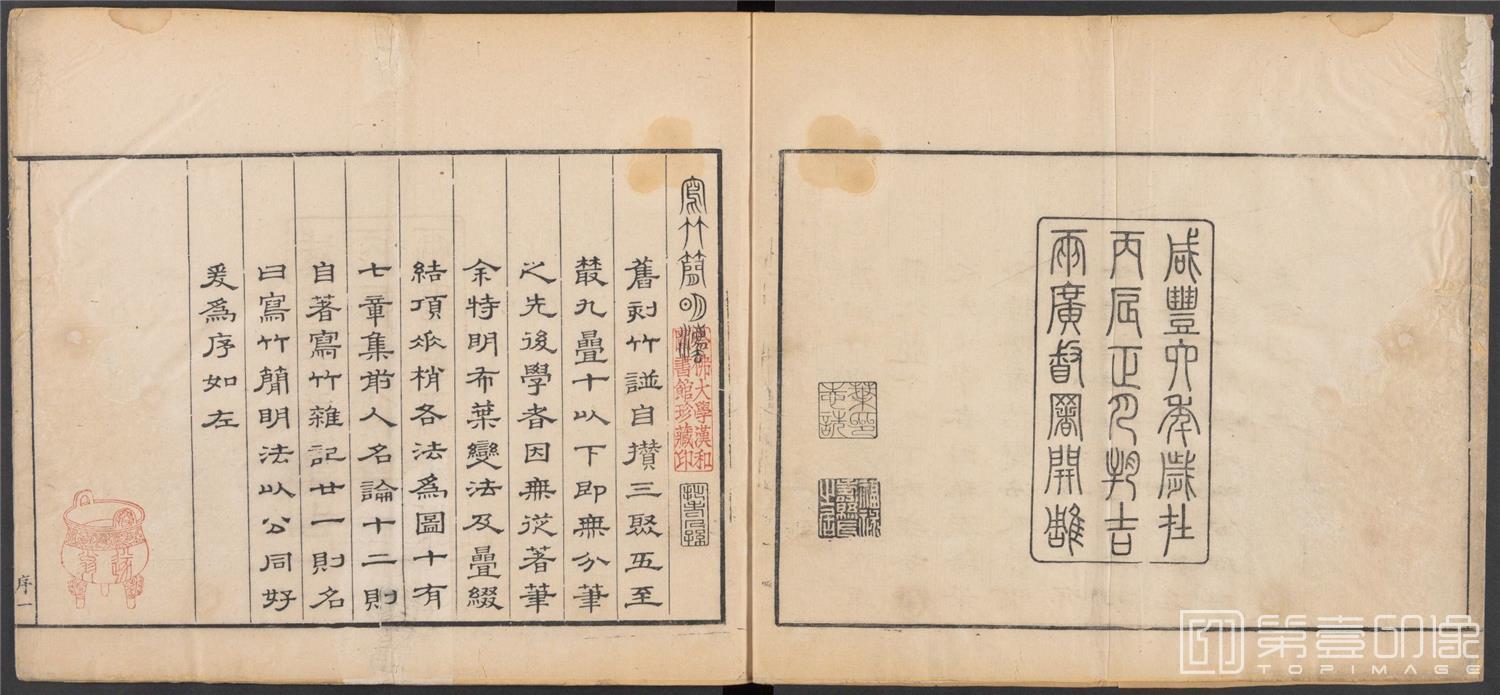 咸豐六年歲在
丙辰正月朔吉
兩廣督署開雕
寫竹簡明灋
哈佛大學漢和
圖書館珍藏印
舊刻竹譜自攢三聚五至
叢九疊十以下即無分筆
之先後學者因無從著筆
余特明布葉變法及疊綴
結頂垂梢各法爲圖十有
七章集前人名論十二則
自著寫竹雜記廿一則名
曰寫竹簡明法以公同好
爰爲序如左
序一
第壹印像
TOPIMAGE